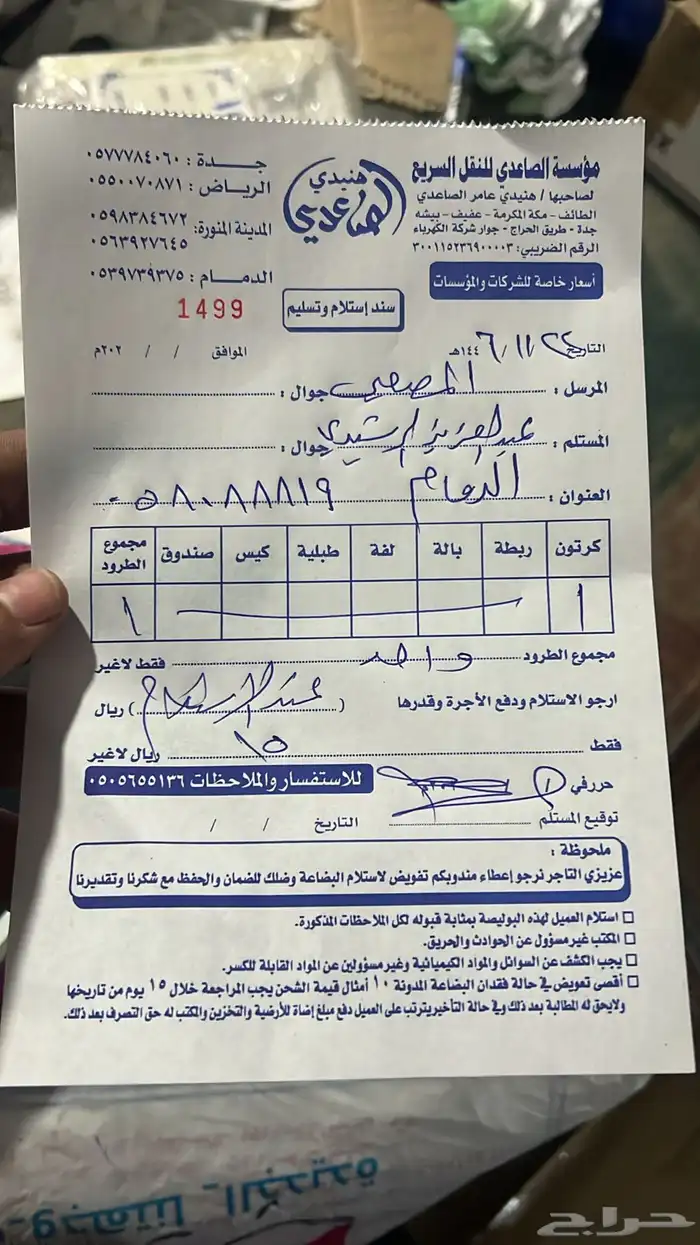 مؤسسة الصاعدي للنقل السريع
لصاحبها / هنيدي عامر الصاعدي
الطائف - مكة المكرمة - عفيف - بيشه
جدة - طريق الحراج - جوار شركة الكهرباء
الرقم الضريبي: ٣٠٠١١٥٢٣٦٩٠٠٠٠٣
أسعار خاصة للشركات والمؤسسات
هنيدي
الصاعدي
جـــدة : ٠٥٧٧٧٨٤٠٦٠
الرياض : ٠٥٥٠٠٧٠٨٧١
المدينة المنورة: ٠٥٩٨٣٨٤٦٧٢
٠٥٦٣٩٢٧٦٤٥
الدمـــام : ٠٥٣٩٧٣٩٣٧٥
1499
سند إستلام وتسليم
التاريخ ٢٢ / ١١ / ١٤٤٦هـ الموافق / / ٢٠٢م
المرسل : جوال :
المستلم : عبدالعزيز الرشيدي جوال :
العنوان : الدمام ٠٥٨٠٨٨٨٨١٩
كرتون ربطة بالة لفة طبلية كيس صندوق مجموع الطرود
١ ١
مجموع الطرود واحد فقط لاغير
ارجو الاستلام ودفع الأجرة وقدرها ( عبدالإسلام ) ريال
فقط ١٥ ريال لاغير
حرر في
للاستفسار والملاحظات ٠٥٠٥٦٥٥١٣٦
توقيع المستلم التاريخ / /
ملحوظة :
عزيزي التاجر نرجو إعطاء مندوبكم تفويض لاستلام البضاعة وضلك للضمان والحفظ مع شكرنا وتقديرنا
استلام العميل لهذه البوليصة بمثابة قبوله لكل الملاحظات المذكورة.
المكتب غير مسؤول عن الحوادث والحريق.
يجب الكشف عن السوائل والمواد الكيميائية وغير مسؤولين عن المواد القابلة للكسر.
أقصى تعويض في حالة فقدان البضاعة المدونة ١٠ أمثال قيمة الشحن يجب المراجعة خلال ١٥ يوم من تاريخها
ولايحق له المطالبة بعد ذلك وفي حالة التأخير يترتب على العميل دفع مبلغ إضاة للأرضية والتخزين والمكتب له حق التصرف بعد ذلك.
وجهتنا _ الجديدة
حراج